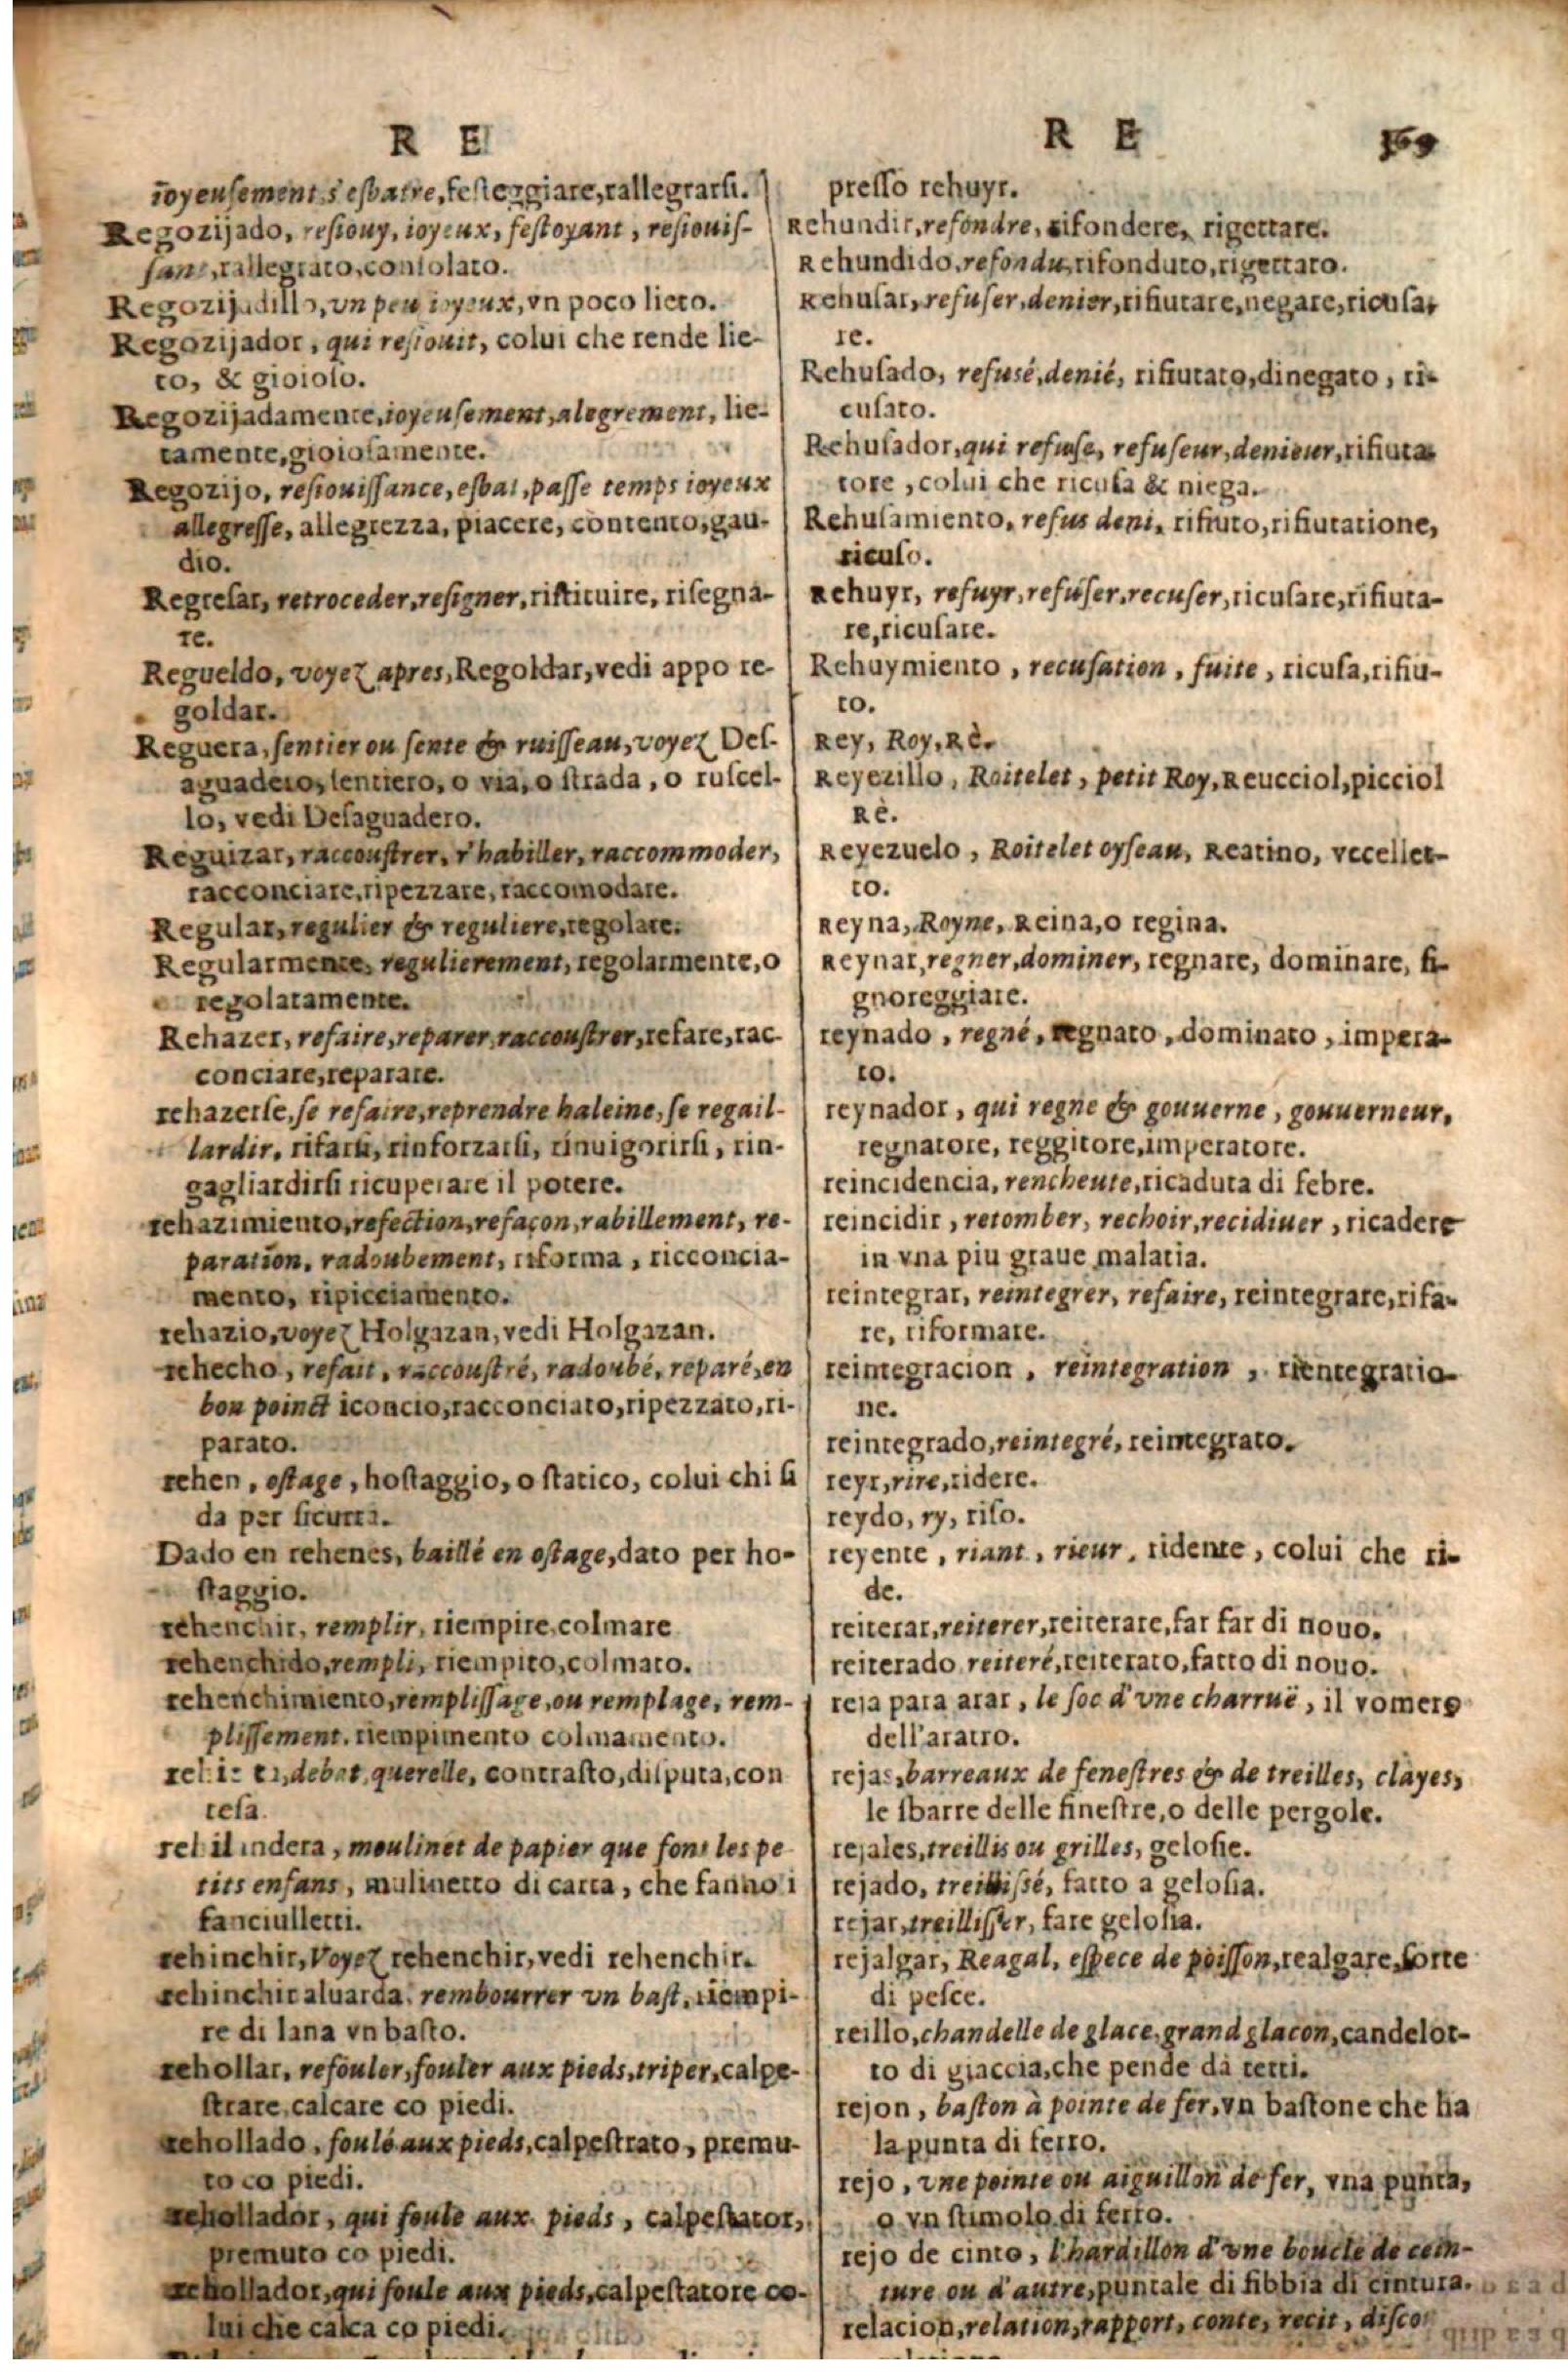 R E
ioyeusement s'esbatre, festeggiare, rallegrarsi.
Regozijado, resiouy, ioyeux, festoyant, resiouis-
sant, rallegrato, consolato.
Regozijadillo, vn peu ioyeux, vn poco lieto.
Regozijador, qui resiouit, colui che rende lie-
to, & gioioso.
Regozijadamente, ioyeusement, alegrement, lie-
tamente, gioiosamente.
Regozijo, resiouissance, esbat, passe temps ioyeux
allegresse, allegrezza, piacere, contento, gau-
dio.
Regresar, retroceder, resigner, ristituire, risegna-
re.
Regueldo, voyez apres, Regoldar, vedi appo re-
goldar.
Reguera, sentier ou sente & ruisseau, voyez Des-
aguadero, sentiero, o via, o strada, o ruscel-
lo, vedi Desaguadero.
Reguizar, raccoustrer, r'habiller, raccommoder,
racconciare, ripezzare, raccomodare.
Regular, regulier & reguliere, regolare.
Regularmente, regulierement, regolarmente, o
regolatamente.
Rehazer, refaire, reparer, raccoustrer, refare, rac-
conciare, reparare.
rehazerse, se refaire, reprendre haleine, se regail-
lardir, rifarsi, rinforzarsi, rinuigorirsi, rin-
gagliardirsi ricuperare il potere.
rehazimiento, refection, refaçon, rabillement, re-
paration, radoubement, riforma, ricconcia-
mento, ripicciamento.
rehazio, voyez Holgazan, vedi Holgazan.
rehecho, refait, raccoustré, radoubé, reparé, en
bon poinct iconcio, racconciato, ripezzato, ri-
parato.
rehen, ostage, hostaggio, o statico, colui chi si
da per sicurta.
Dado en rehenes, baillé en ostage, dato per ho-
staggio.
rehenchir, remplir, riempire, colmare
rehenchido, rempli, riempito, colmato.
rehenchimiento, remplissage, ou remplage, rem-
plissement, riempimento colmamento.
debat, querelle, contrasto, disputa, con
tesa.
rehilandera, moulinet de papier que font les pe
tits enfans, mulinetto di carta, che fanno i
fanciulletti.
rehinchir, Voyez rehenchir, vedi rehenchir.
rehinchir aluarda, rembourrer vn bast, riempi-
re di lana vn basto.
rehollar, refouler, fouler aux pieds, triper, calpe-
strare, calcare co piedi.
rehollado, foulé aux pieds, calpestrato, premu-
to co piedi.
rehollador, qui foule aux pieds, calpestator,
premuto co piedi.
rehollador, qui foule aux pieds, calpestatore co-
lui che calca co piedi.
R E 169
presso rehuyr.
Rehundir, refondre, rifondere, rigettare.
Rehundido, refondu, rifonduto, rigettato.
Rehusar, refuser, denier, rifiutare, negare, ricusa-
re.
Rehusado, refusé, denié, rifiutato, dinegato, ri-
cusato.
Rehusador, qui refuse, refuseur, denieur, rifiuta-
tore, colui che ricusa & niega.
Rehusamiento, refus deni, rifiuto, rifiutatione,
ricuso.
Rehuyr, refuyr, refuser, recuser, ricusare, rifiuta-
re, ricusare.
Rehuymiento, recusation, fuite, ricusa, rifiu-
to.
Rey, Roy, Rè.
Reyezillo, Roitelet, petit Roy, Reucciol, picciol
Rè.
Reyezuelo, Roitelet oyseau, Reatino, vccellet-
to.
Reyna, Royne, Reina, o regina.
Reynar, regner, dominer, regnare, dominare, si-
gnoreggiare.
reynado, regné, regnato, dominato, impera-
to.
reynador, qui regne & gouuerne, gouuerneur,
regnatore, reggitore, imperatore.
reincidencia, rencheute, ricaduta di febre.
reincidir, retomber, rechoir, recidiuer, ricadere
in vna piu graue malatia.
reintegrar, reintegrer, refaire, reintegrare, rifa-
re, riformare.
reintegracion, reintegration, rientegratio-
ne.
reintegrado, reintegré, reintegrato.
reyr, rire, ridere.
reydo, ry, riso.
reyente, riant, rieur, ridente, colui che ri-
de.
reiterar, reiterer, reiterare, far far di nouo.
reiterado reiteré, reiterato, fatto di nouo.
reja para arar, le soc d'vne charruë, il vomere
dell'aratro.
rejas, barreaux de fenestres & de treilles, clayes,
le sbarre delle finestre, o delle pergole.
rejales, treillis ou grilles, gelosie.
rejado, treillissé, fatto a gelosia.
rejar, treillisser, fare gelosia.
rejalgar, Reagal, espece de poisson, realgare, sorte
di pesce.
reillo, chandelle de glace, grand glacon, candelot-
to di giaccia, che pende da tetti.
rejon, baston à pointe de fer, vn bastone che ha
la punta di ferro.
rejo, vne pointe ou aiguillon de fer, vna punta,
o vn stimolo di ferro.
rejo de cinto, l'hardillon d'vne boucle de cein-
ture ou d'autre, puntale di fibbia di cintura.
relacion, relation, rapport, conte, recit, disco